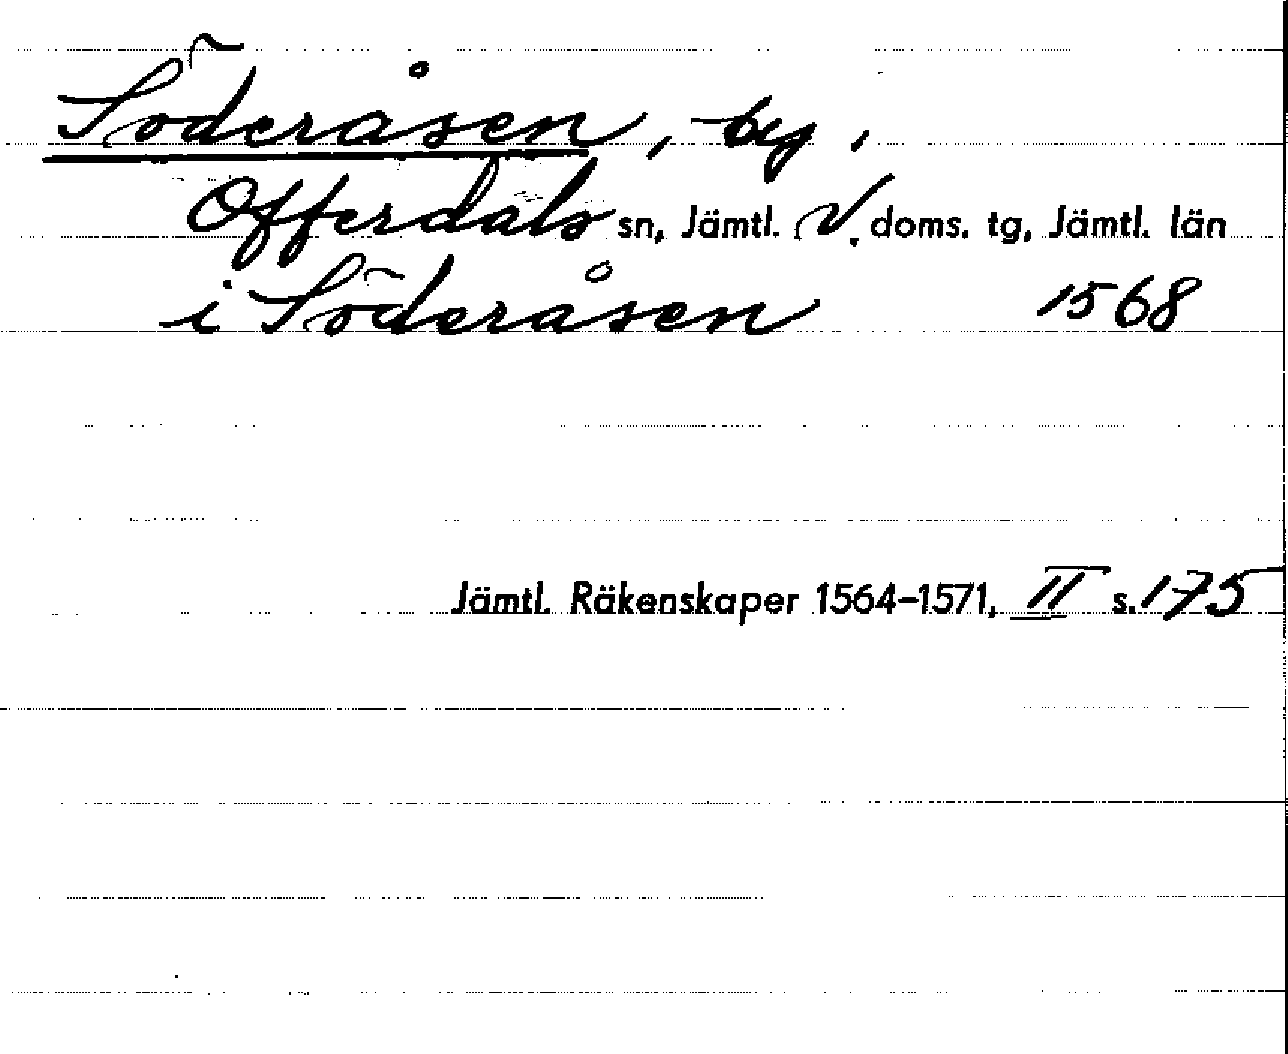 Söderåsen, by,
Offerdals sn, Jämtl. V. doms. tg, Jämtl. län
i Söderåsen 1568
Jämtl. Räkenskaper 1564-1571, II s. 175